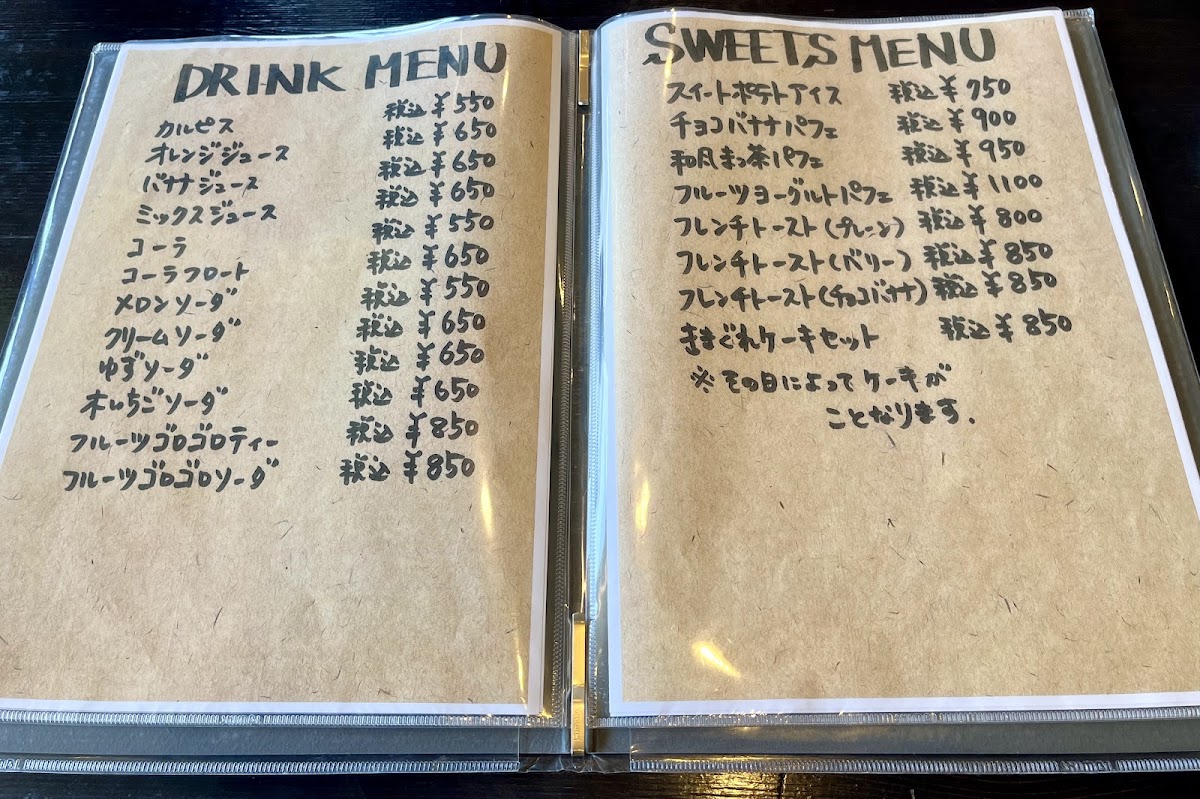 DRINK MENU
カルピス 税込¥550
オレンジジュース 税込¥650
バナナジュース 税込¥650
ミックスジュース 税込¥650
コーラ 税込¥550
コーラフロート 税込¥650
メロンソーダ 税込¥550
クリームソーダ 税込¥650
ゆずソーダ 税込¥650
木いちごソーダ 税込¥650
フルーツゴロゴロティー 税込¥850
フルーツゴロゴロソーダ 税込¥850
SWEETS MENU
スイートポテトアイス 税込¥750
チョコバナナパフェ 税込¥900
和風まっ茶パフェ 税込¥950
フルーツヨーグルトパフェ 税込¥1100
フレンチトースト(プレーン) 税込¥800
フレンチトースト(ベリー) 税込¥850
フレンチトースト(チョコバナナ) 税込¥850
きまぐれケーキセット 税込¥850
※その日によってケーキが
ことなります.